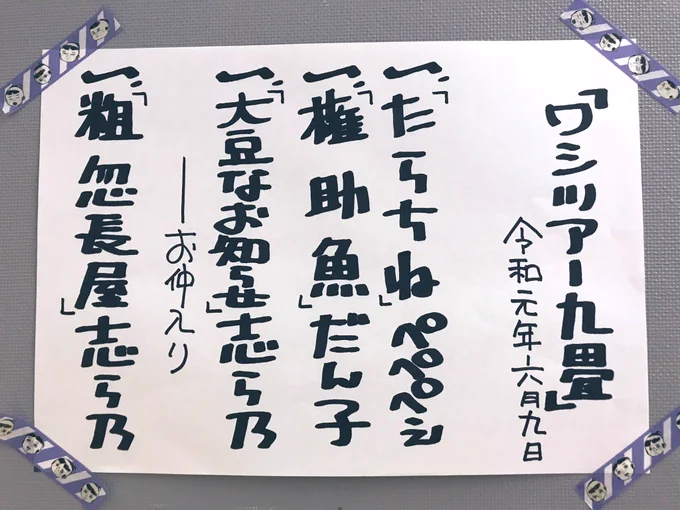 「ワシツアー九畳」
令和元年六月九日
一、「たらちね」ペペペペシ
一、「権助魚」だん子
一、「大豆なお知らせ」志ら乃
──お仲入り
一、「粗忽長屋」志ら乃